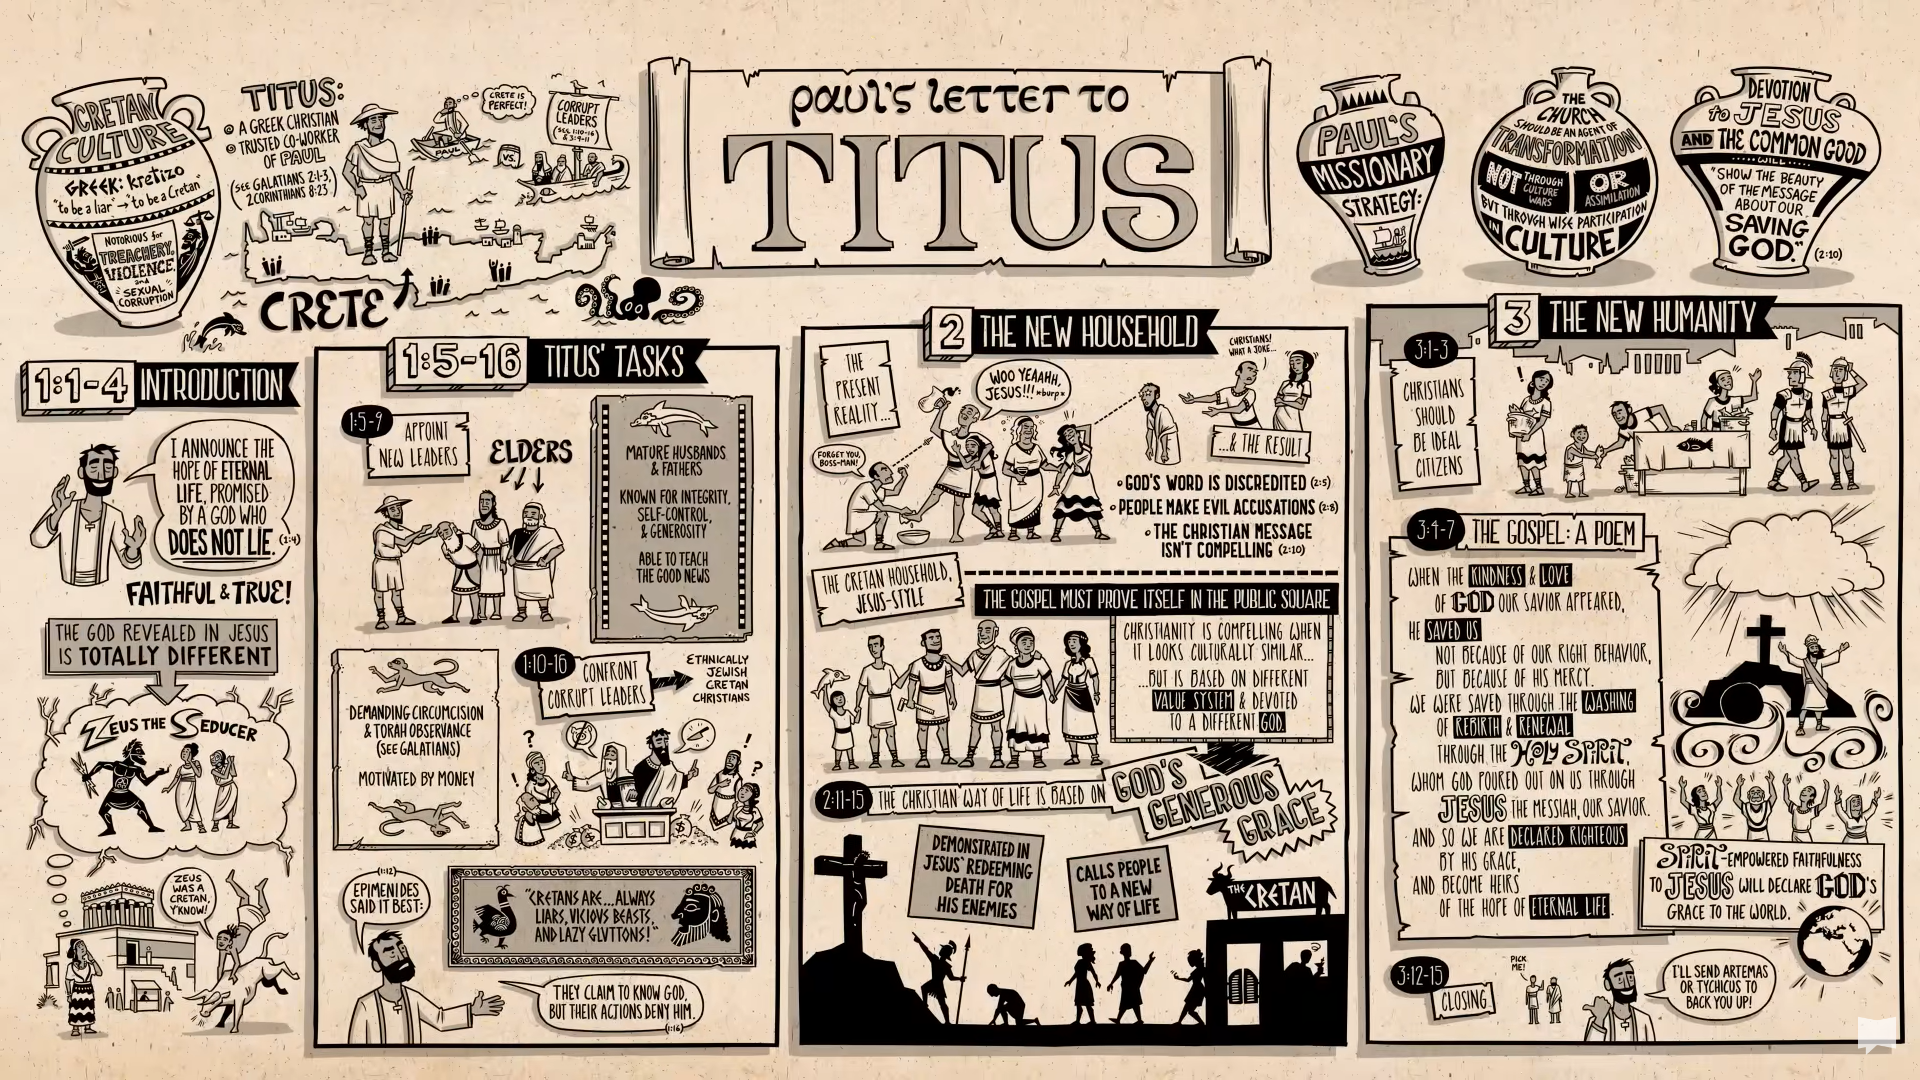 PAUL'S LETTER TO
TITUS
CRETAN
CULTURE
GREEK: kretizo
"to be a liar" → "to be a Cretan"
NOTORIOUS for
TREACHERY,
VIOLENCE,
and
SEXUAL
CORRUPTION
TITUS:
A GREEK CHRISTIAN
TRUSTED CO-WORKER
OF PAUL
(SEE GALATIANS 2:1-3,
2 CORINTHIANS 8:23)
CRETE IS
PERFECT!
PAUL
VS.
CORRUPT
LEADERS
(SEE 1:10-16
& 3:9-11)
CRETE
PAUL'S
MISSIONARY
STRATEGY:
THE
CHURCH
SHOULD BE AN AGENT OF
TRANSFORMATION
NOT THROUGH
CULTURE
WARS
OR
ASSIMILATION
BUT THROUGH WISE PARTICIPATION
IN
CULTURE
DEVOTION
to JESUS
AND THE COMMON GOOD
WILL
"SHOW THE BEAUTY
OF THE MESSAGE
ABOUT OUR
SAVING
GOD." (2:10)
1:1-4 INTRODUCTION
I ANNOUNCE THE
HOPE OF ETERNAL
LIFE, PROMISED
BY A GOD WHO
DOES NOT LIE. (1:4)
FAITHFUL & TRUE!
THE GOD REVEALED IN JESUS
IS TOTALLY DIFFERENT
ZEUS THE SEDUCER
ZEUS
WAS A
CRETAN,
Y'KNOW!
1:5-16 TITUS' TASKS
1:5-9
APPOINT
NEW LEADERS
ELDERS
MATURE HUSBANDS
& FATHERS
KNOWN FOR INTEGRITY,
SELF-CONTROL,
& GENEROSITY
ABLE TO TEACH
THE GOOD NEWS
DEMANDING CIRCUMCISION
& TORAH OBSERVANCE
(SEE GALATIANS)
MOTIVATED BY MONEY
1:10-16
CONFRONT
CORRUPT LEADERS
ETHNICALLY
JEWISH
CRETAN
CHRISTIANS
?
!
!
?
$
$
(1:12)
EPIMENIDES
SAID IT BEST:
"CRETANS ARE...ALWAYS
LIARS, VICIOUS BEASTS,
AND LAZY GLUTTONS!"
THEY CLAIM TO KNOW GOD,
BUT THEIR ACTIONS DENY HIM.
(1:16)
2 THE NEW HOUSEHOLD
THE
PRESENT
REALITY...
WOO YEAAHH,
JESUS!!! *burp*
FORGET YOU,
BOSS-MAN!
CHRISTIANS!
WHAT A JOKE...
...& THE RESULT
• GOD'S WORD IS DISCREDITED (2:5)
• PEOPLE MAKE EVIL ACCUSATIONS (2:8)
• THE CHRISTIAN MESSAGE
ISN'T COMPELLING (2:10)
THE CRETAN HOUSEHOLD,
JESUS-STYLE
THE GOSPEL MUST PROVE ITSELF IN THE PUBLIC SQUARE
CHRISTIANITY IS COMPELLING WHEN
IT LOOKS CULTURALLY SIMILAR...
...BUT IS BASED ON DIFFERENT
VALUE SYSTEM & DEVOTED
TO A DIFFERENT GOD.
2:11-15 THE CHRISTIAN WAY OF LIFE IS BASED ON
GOD'S
GENEROUS
GRACE
DEMONSTRATED IN
JESUS' REDEEMING
DEATH FOR
HIS ENEMIES
CALLS PEOPLE
TO A NEW
WAY OF LIFE
THE CRETAN
3 THE NEW HUMANITY
3:1-3
CHRISTIANS
SHOULD
BE IDEAL
CITIZENS
!
3:4-7 THE GOSPEL: A POEM
WHEN THE KINDNESS & LOVE
OF GOD OUR SAVIOR APPEARED,
HE SAVED US
NOT BECAUSE OF OUR RIGHT BEHAVIOR,
BUT BECAUSE OF HIS MERCY.
WE WERE SAVED THROUGH THE WASHING
OF REBIRTH & RENEWAL
THROUGH THE HOLY SPIRIT,
WHOM GOD POURED OUT ON US THROUGH
JESUS THE MESSIAH, OUR SAVIOR.
AND SO WE ARE DECLARED RIGHTEOUS
BY HIS GRACE,
AND BECOME HEIRS
OF THE HOPE OF ETERNAL LIFE.
SPIRIT-EMPOWERED FAITHFULNESS
TO JESUS WILL DECLARE GOD'S
GRACE TO THE WORLD.
3:12-15
CLOSING
PICK
ME!
I'LL SEND ARTEMAS
OR TYCHICUS TO
BACK YOU UP!